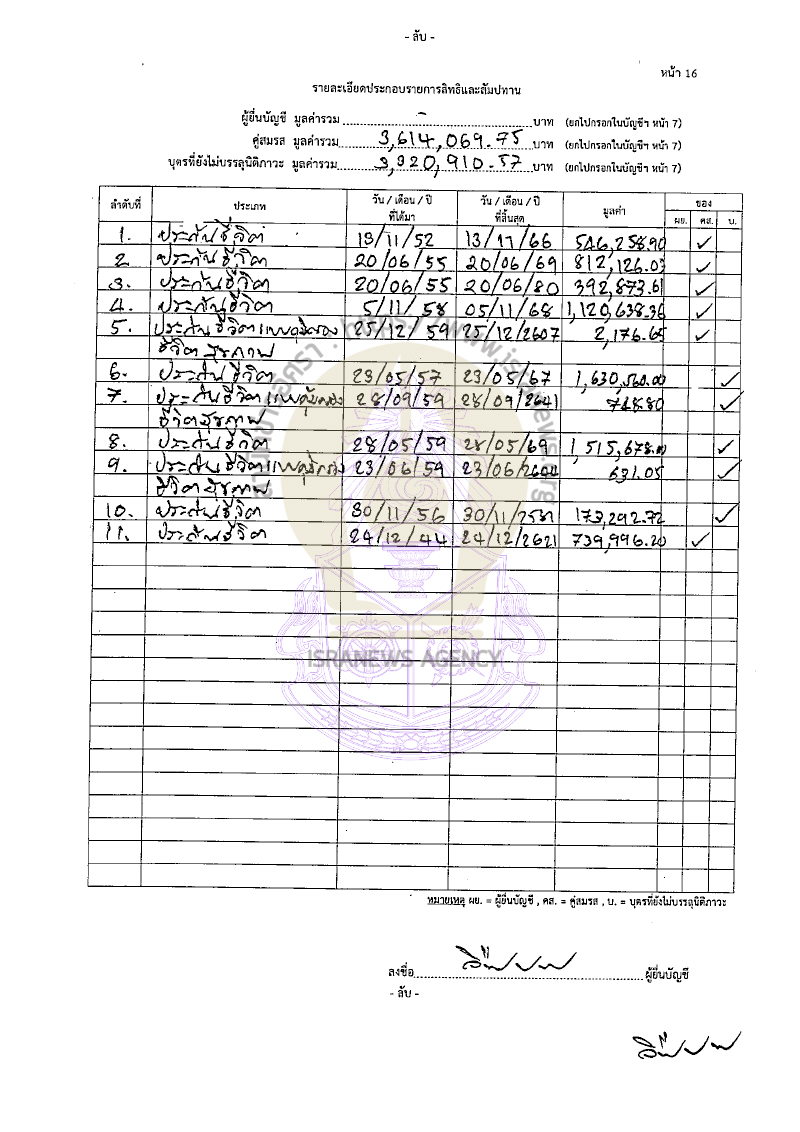 - ลับ -
หน้า 16
รายละเอียดประกอบรายการสิทธิและสัมปทาน
ผู้ยื่นบัญชี มูลค่ารวม - บาท (ยกไปกรอกในบัญชีฯ หน้า 7)
คู่สมรส มูลค่ารวม 3,614,069.75 บาท (ยกไปกรอกในบัญชีฯ หน้า 7)
บุตรที่ยังไม่บรรลุนิติภาวะ มูลค่ารวม 3,320,910.57 บาท (ยกไปกรอกในบัญชีฯ หน้า 7)
ลำดับที่ ประเภท วัน / เดือน / ปี ที่ได้มา วัน / เดือน / ปี ที่สิ้นสุด มูลค่า ของ
ผย. คส. บ.
1. ประกันชีวิต 13/11/52 13/11/66 546,258.90 ✓
2. ประกันชีวิต 20/06/55 20/06/69 812,126.03 ✓
3. ประกันชีวิต 20/06/55 20/06/80 392,873.61 ✓
4. ประกันชีวิต 5/11/58 05/11/68 1,120,638.36 ✓
5. ประกันชีวิตแบบคุ้มครอง 25/12/59 25/12/2607 2,176.65 ✓
ชีวิตสุขภาพ
6. ประกันชีวิต 23/05/57 23/05/67 1,630,560.00 ✓
7. ประกันชีวิตแบบคุ้มครอง 28/09/59 28/09/2641 748.80 ✓
ชีวิตสุขภาพ
8. ประกันชีวิต 28/05/59 28/05/69 1,515,678.0 ✓
9. ประกันชีวิตแบบคุ้มครอง 23/06/59 23/06/2644 631.05 ✓
ชีวิตสุขภาพ
10. ประกันชีวิต 30/11/56 30/11/2581 173,292.72 ✓
11. ประกันชีวิต 24/12/44 24/12/2621 739,996.20 ✓
สำนักข่าวอิศรา : http://www.isranews.org
ISRANEWS AGENCY
หมายเหตุ ผย. = ผู้ยื่นบัญชี , คส. = คู่สมรส , บ. = บุตรที่ยังไม่บรรลุนิติภาวะ
ลงชื่อ ผู้ยื่นบัญชี
- ลับ -